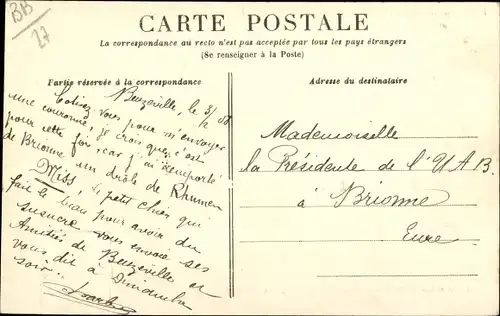 BB
27
CARTE POSTALE
La correspondance au recto n'est pas acceptée par tous les pays étrangers
(Se renseigner à la Poste)
Partie réservée à la correspondance
Beuzeville, le 3/2 08
Cotisez vous pour m'envoyer
une couronne, je crois que c'est
pour cette fois, car j'ai remporté
de Brionne un drôle de Rhume
Miss, le petit chien qui
fait le beau pour avoir du
susucre vous envoie ses
Amitiés de Beuzeville et
vous dit à Dimanche
soir..
Adresse du destinataire
Mademoiselle
la Présidente de l'UAB.
à Brionne
Eure